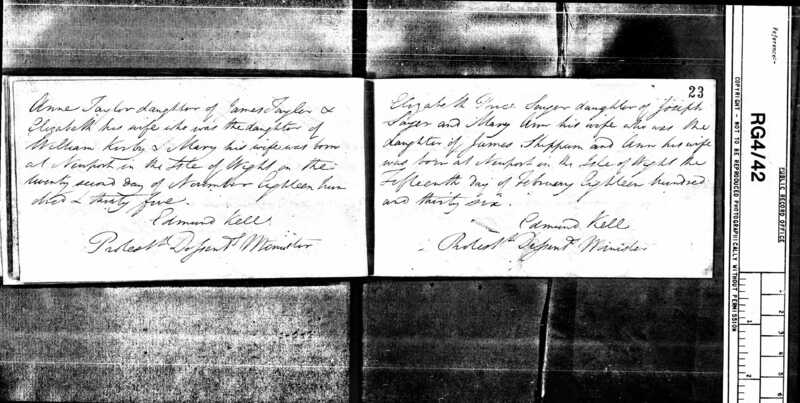 Anne Taylor daughter of James Taylor &
Elizabeth his wife who was the daughter of
William Kirby & Mary his wife was born
at Newport in the Isle of Wight on the
twenty second day of November Eighteen hun
dred & thirty five.
Edmund Kell
Protest.t Dissent.g Minister
23
Elizabeth Price Sayer daughter of Joseph
Sayer and Mary Ann his wife who was the
daughter of James Shippum and Ann his wife
was born at Newport in the Isle of Wight the
Fifteenth day of February Eighteen hundred
and thirty six.
Edmund Kell
Protest.t Dissent.g Minister
Reference:-
PUBLIC RECORD OFFICE
RG4/42
COPYRIGHT - NOT TO BE REPRODUCED PHOTOGRAPHICALLY WITHOUT PERMISSION
1
2
4
5
6